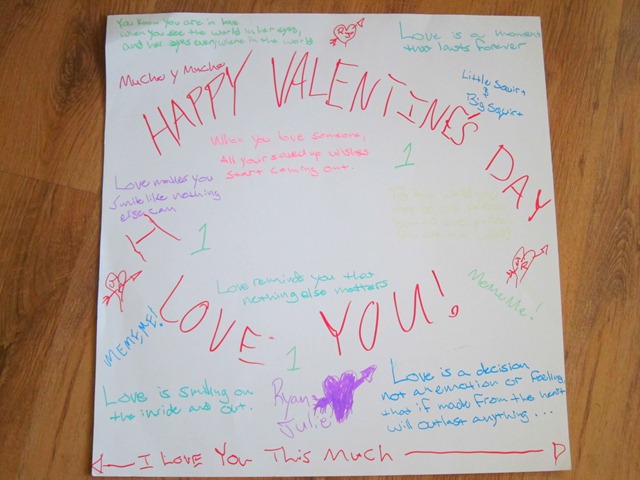 You know you are in love
when you see the world in her eyes,
and her eyes everywhere in the world
Love is a moment
that lasts forever
Mucho y Mucho
HAPPY VALENTINE'S DAY
Little Squirt
&
Big Squirt
When you love someone,
All your saved up wishes
start coming out.
1
Love makes you
smile like nothing
else can
I
1
Love reminds you that
nothing else matters
MeMeMe!
MEMEME!
LOVE YOU!
1
Love is smiling on
the inside and out.
Ryan
Julie
Love is a decision
not an emotion or feeling
that if made from the heart
will outlast anything...
I LOVE YOU THIS MUCH